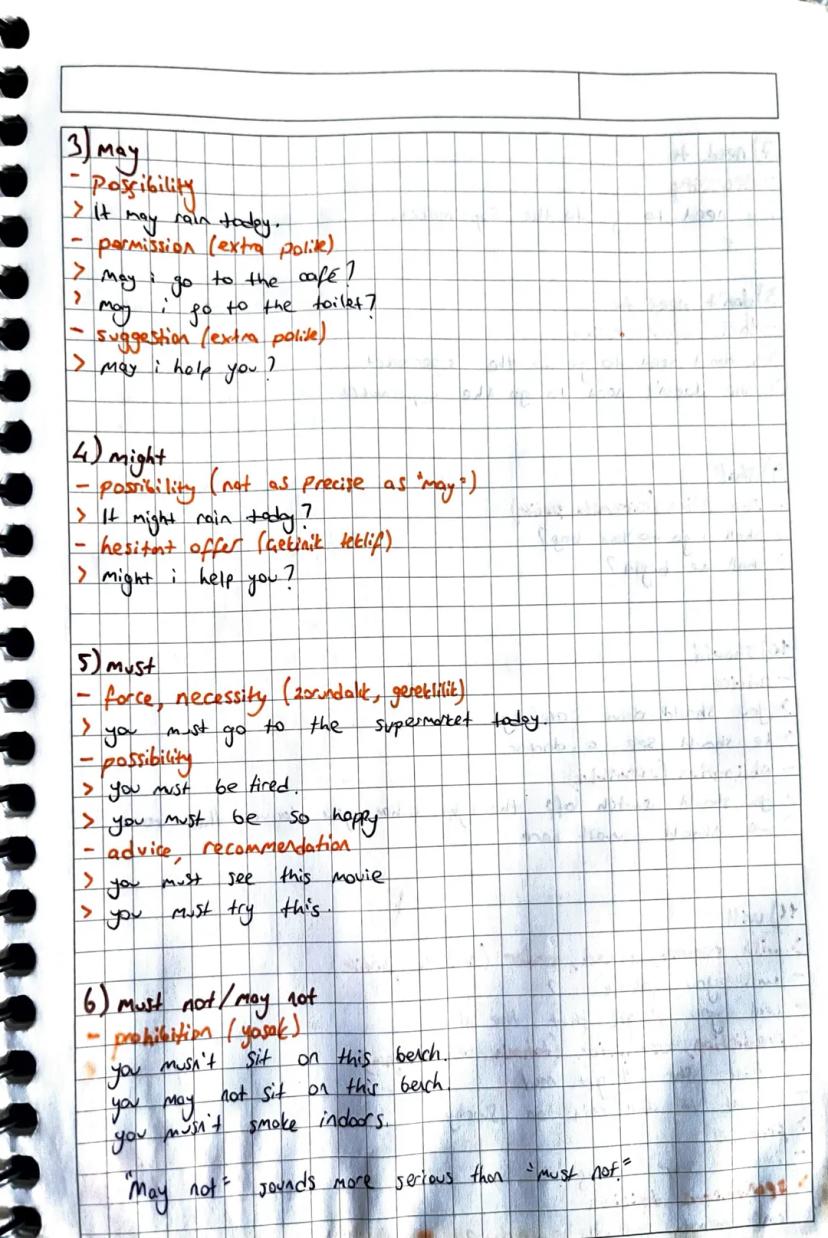 3) May
- possibility
> It may rain today.
- permission (extra polite)
> May i go to the café?
> May i go to the toilet?
- suggestion (extra polite)
> May i help you?
4) might
- possibility (not as precise as "may")
> It might rain today?
- hesitant offer (çekinik teklif)
> might i help you?
5) must
- force, necessity (zorundalık, gereklilik)
> you must go to the supermarket today.
- possibility
> you must be tired.
> you must be so happy
- advice, recommendation
> you must see this movie
> you must try this.
6) must not/may not
- prohibition (yasak)
you musn't sit on this bench.
you may not sit on this bench.
you musn't smoke indoors.
"May not" sounds more serious than "must not."